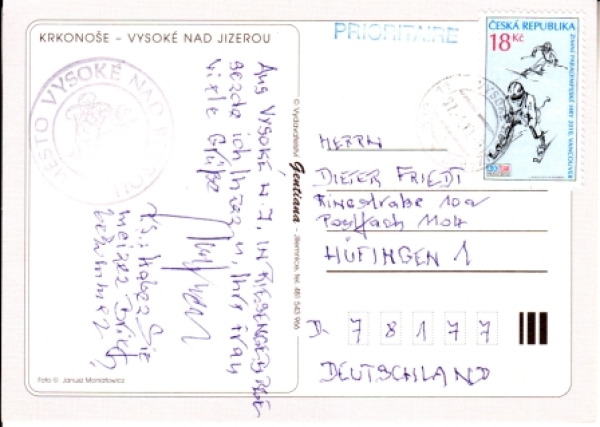 KRKONOŠE – VYSOKÉ NAD JIZEROU
PRIORITAIRE
ČESKÁ REPUBLIKA
18 Kč
ZIMNÍ PARALYMPIJSKÉ HRY 2010, VANCOUVER
MĚSTO VYSOKÉ NAD
Aus VYSOKÉ n. J. IM RIESENGEBIRGE
sende ich Ihnen u. Ihrer Frau
viele Grüße
P.S.: Haben Sie
meinen Brief
bekommen?
© Vydavatelství Gentiana – Jilemnice, tel. 481 543 966
HERRN
DIETER FRIEDT
Ringstraße 10a
Postfach 1104
HÜFINGEN 1
D- 7 8 1 7 7
DEUTSCHLAND
Foto © Janusz Moniatowicz